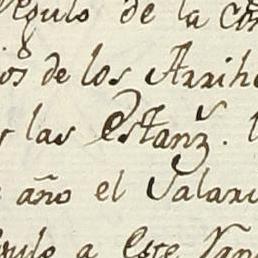 regulo de la Co
ios de los Arrih
s las Estanz.
e año el Salari
gulo a este San